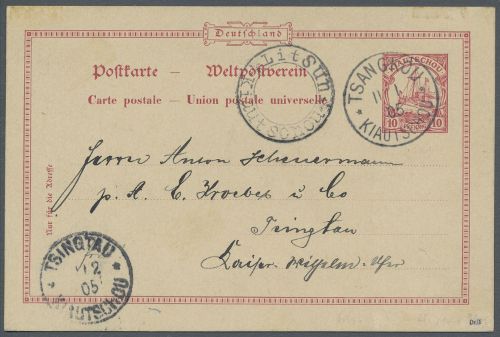 Deutschland
Postkarte — Weltpostverein
Carte postale — Union postale universelle
Nur für die Adresse
KIAUTSCHOU
10 10
LitSun
Kiautschou
TSANGKOU
11 1
05
* KIAUTSCHOU *
Herrn Anton Scheuermann
p. A. C. Kroebel u Co
Tsingtau
Kaiser-Wilhelm-Ufer
TSINGTAU
12
05
* KIAUTSCHOU *